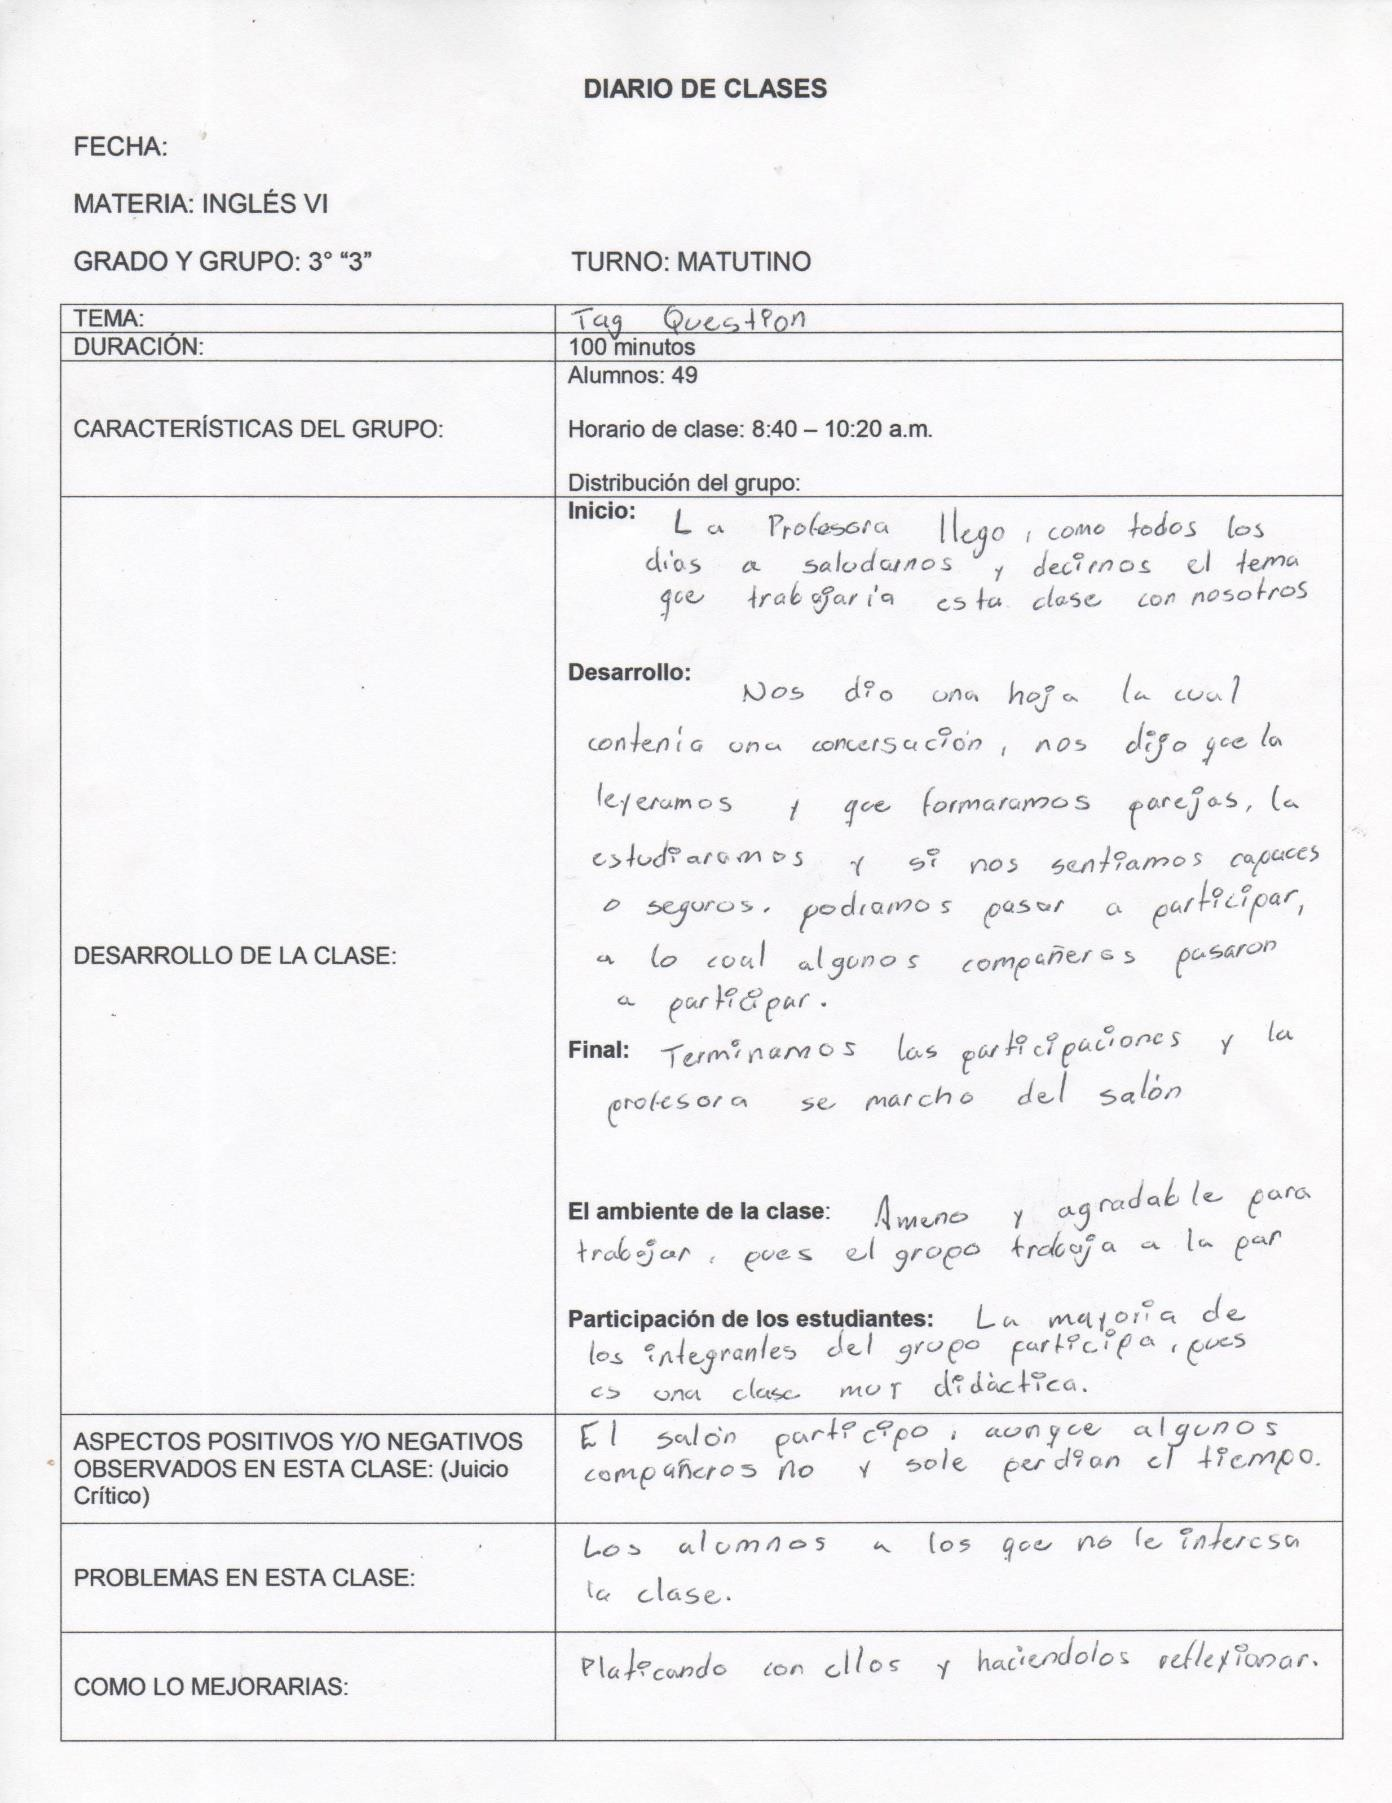 DIARIO DE CLASES
FECHA:
MATERIA: INGLÉS VI
GRADO Y GRUPO: 3° “3” TURNO: MATUTINO
TEMA: Tag Question
DURACIÓN: 100 minutos
CARACTERÍSTICAS DEL GRUPO:
Alumnos: 49
Horario de clase: 8:40 – 10:20 a.m.
Distribución del grupo:
DESARROLLO DE LA CLASE:
Inicio: La Profesora llego, como todos los
días a saludarnos y decirnos el tema
que trabajaría esta clase con nosotros
Desarrollo: Nos dio una hoja la cual
contenía una conversación, nos dijo que la
leyeramos y que formaramos parejas, la
estudiaramos y si nos sentiamos capaces
o seguros. podiamos pasar a participar,
a lo cual algunos compañeros pasaron
a participar.
Final: Terminamos las participaciones y la
profesora se marcho del salón
El ambiente de la clase: Ameno y agradable para
trabajar, pues el grupo trabaja a la par
Participación de los estudiantes: La mayoria de
los integrantes del grupo participa, pues
es una clase muy didáctica.
ASPECTOS POSITIVOS Y/O NEGATIVOS
OBSERVADOS EN ESTA CLASE: (Juicio
Crítico)
El salón participo, aunque algunos
compañeros no y sole perdian el tiempo.
PROBLEMAS EN ESTA CLASE:
Los alumnos a los que no le interesa
la clase.
COMO LO MEJORARIAS:
Platicando con ellos y haciendolos reflexionar.